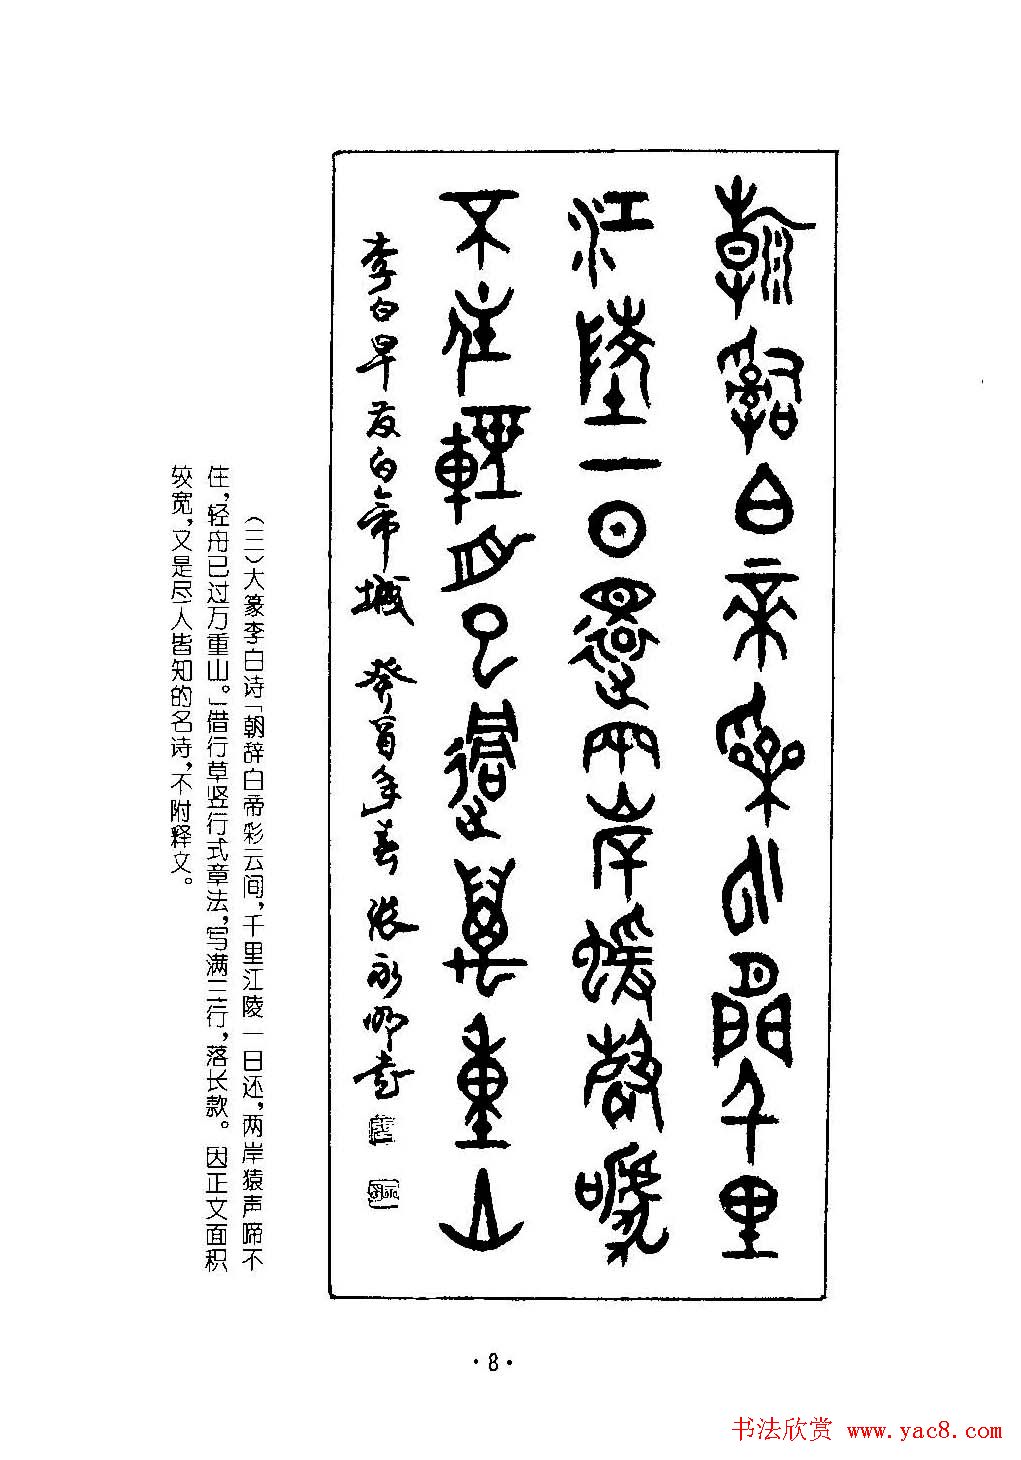 朝辞白帝采云間千里
江陵一日還兩岸猨聲嗁
不住輕舟已過萬重山
李白早发白帝城 癸酉年春 张永明书
(三)大篆李白诗「朝辞白帝彩云间,千里江陵一日还,两岸猿声啼不
住,轻舟已过万重山。」借行草竖行式章法,写满三行,落长款。因正文面积
较宽,又是尽人皆知的名诗,不附释文。
·8·
书法欣赏 www.yac8.com